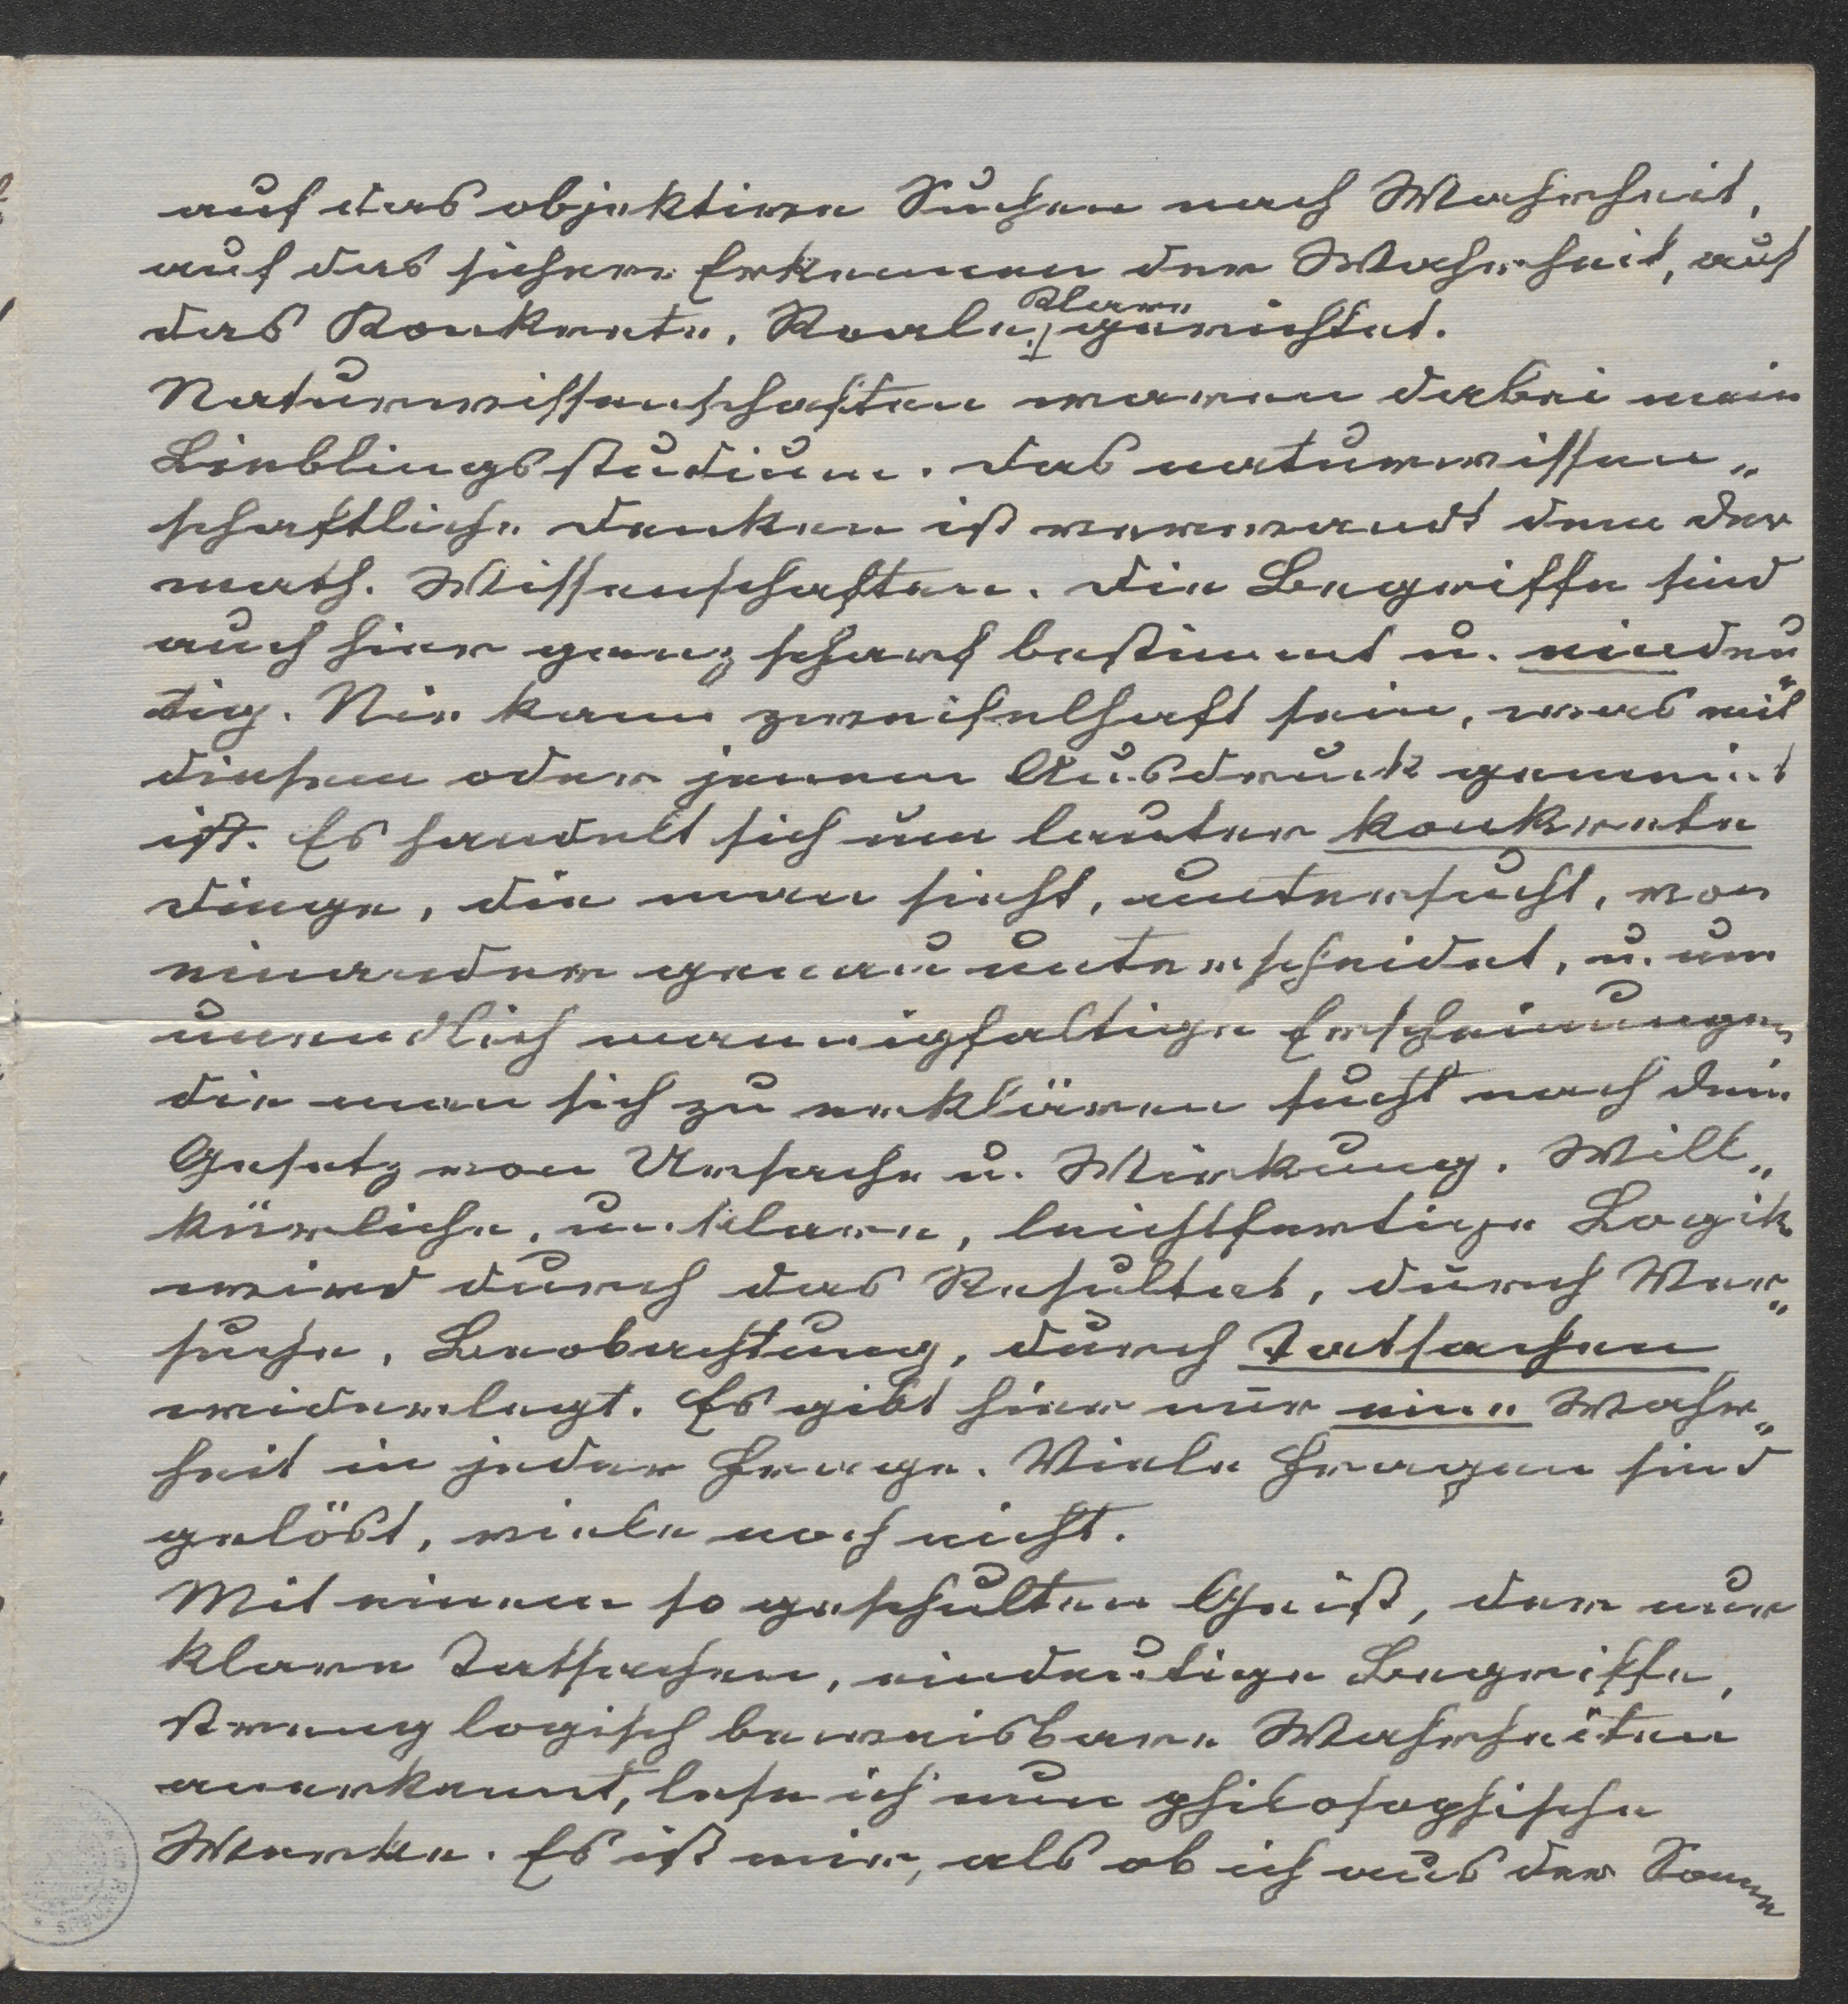 auf das objektive Suchen nach Wahrheit,
auf das sichere Erkennen der Wahrheit, auf
das Konkrete, Reale, Klare gerichtet.
Naturwissenschaften waren dabei mein
Lieblingsstudium. Das naturwissen„
schaftliche Denken ist verwandt dem der
math. Wissenschaften. Die Begriffe sind
auch hier ganz scharf bestimmt u. eindeu„
tig. Nie kann zweifelhaft sein, was mit
diesem oder jenem Ausdruck gemeint
ist. Es handelt sich um lauter konkrete
Dinge, die man sieht, untersucht, von
einander genau unterscheidet, u. um
unendlich mannigfaltige Erscheinungen
die man sich zu erklären sucht nach dem
Gesetz von Ursache u. Wirkung. Will„
kürliche, unklare, leichtfertige Logik
wird durch das Resultat, durch Ver„
suche, Beobachtung, durch Tatsachen
widerlegt. Es gibt hier nur eine Wahr„
heit in jeder Frage. Viele Fragen sind
gelöst, viele noch nicht.
Mit einem so geschulten Geist, der nur
klare Tatsachen, eindeutige Begriffe,
streng logisch beweisbare Wahrheiten
anerkennt, lese ich nun philosophische
Werke. Es ist mir, als ob ich aus der Sonne